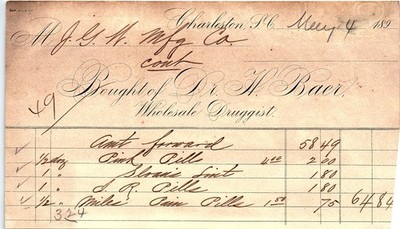 Charleston, S.C. May 4 189
M J. G. W. Mfg Co.
cont
Bought of Dr. H. Baer,
49
Wholesale Druggist.
Amt forward 58 49
1/2 doz Pink Pills 4.00 2 00
1 " Sloans Lint 1 80
1 " S. R. Pills 1 80
1/2 " Miles Pain Pills 1.50 75 64 84
324